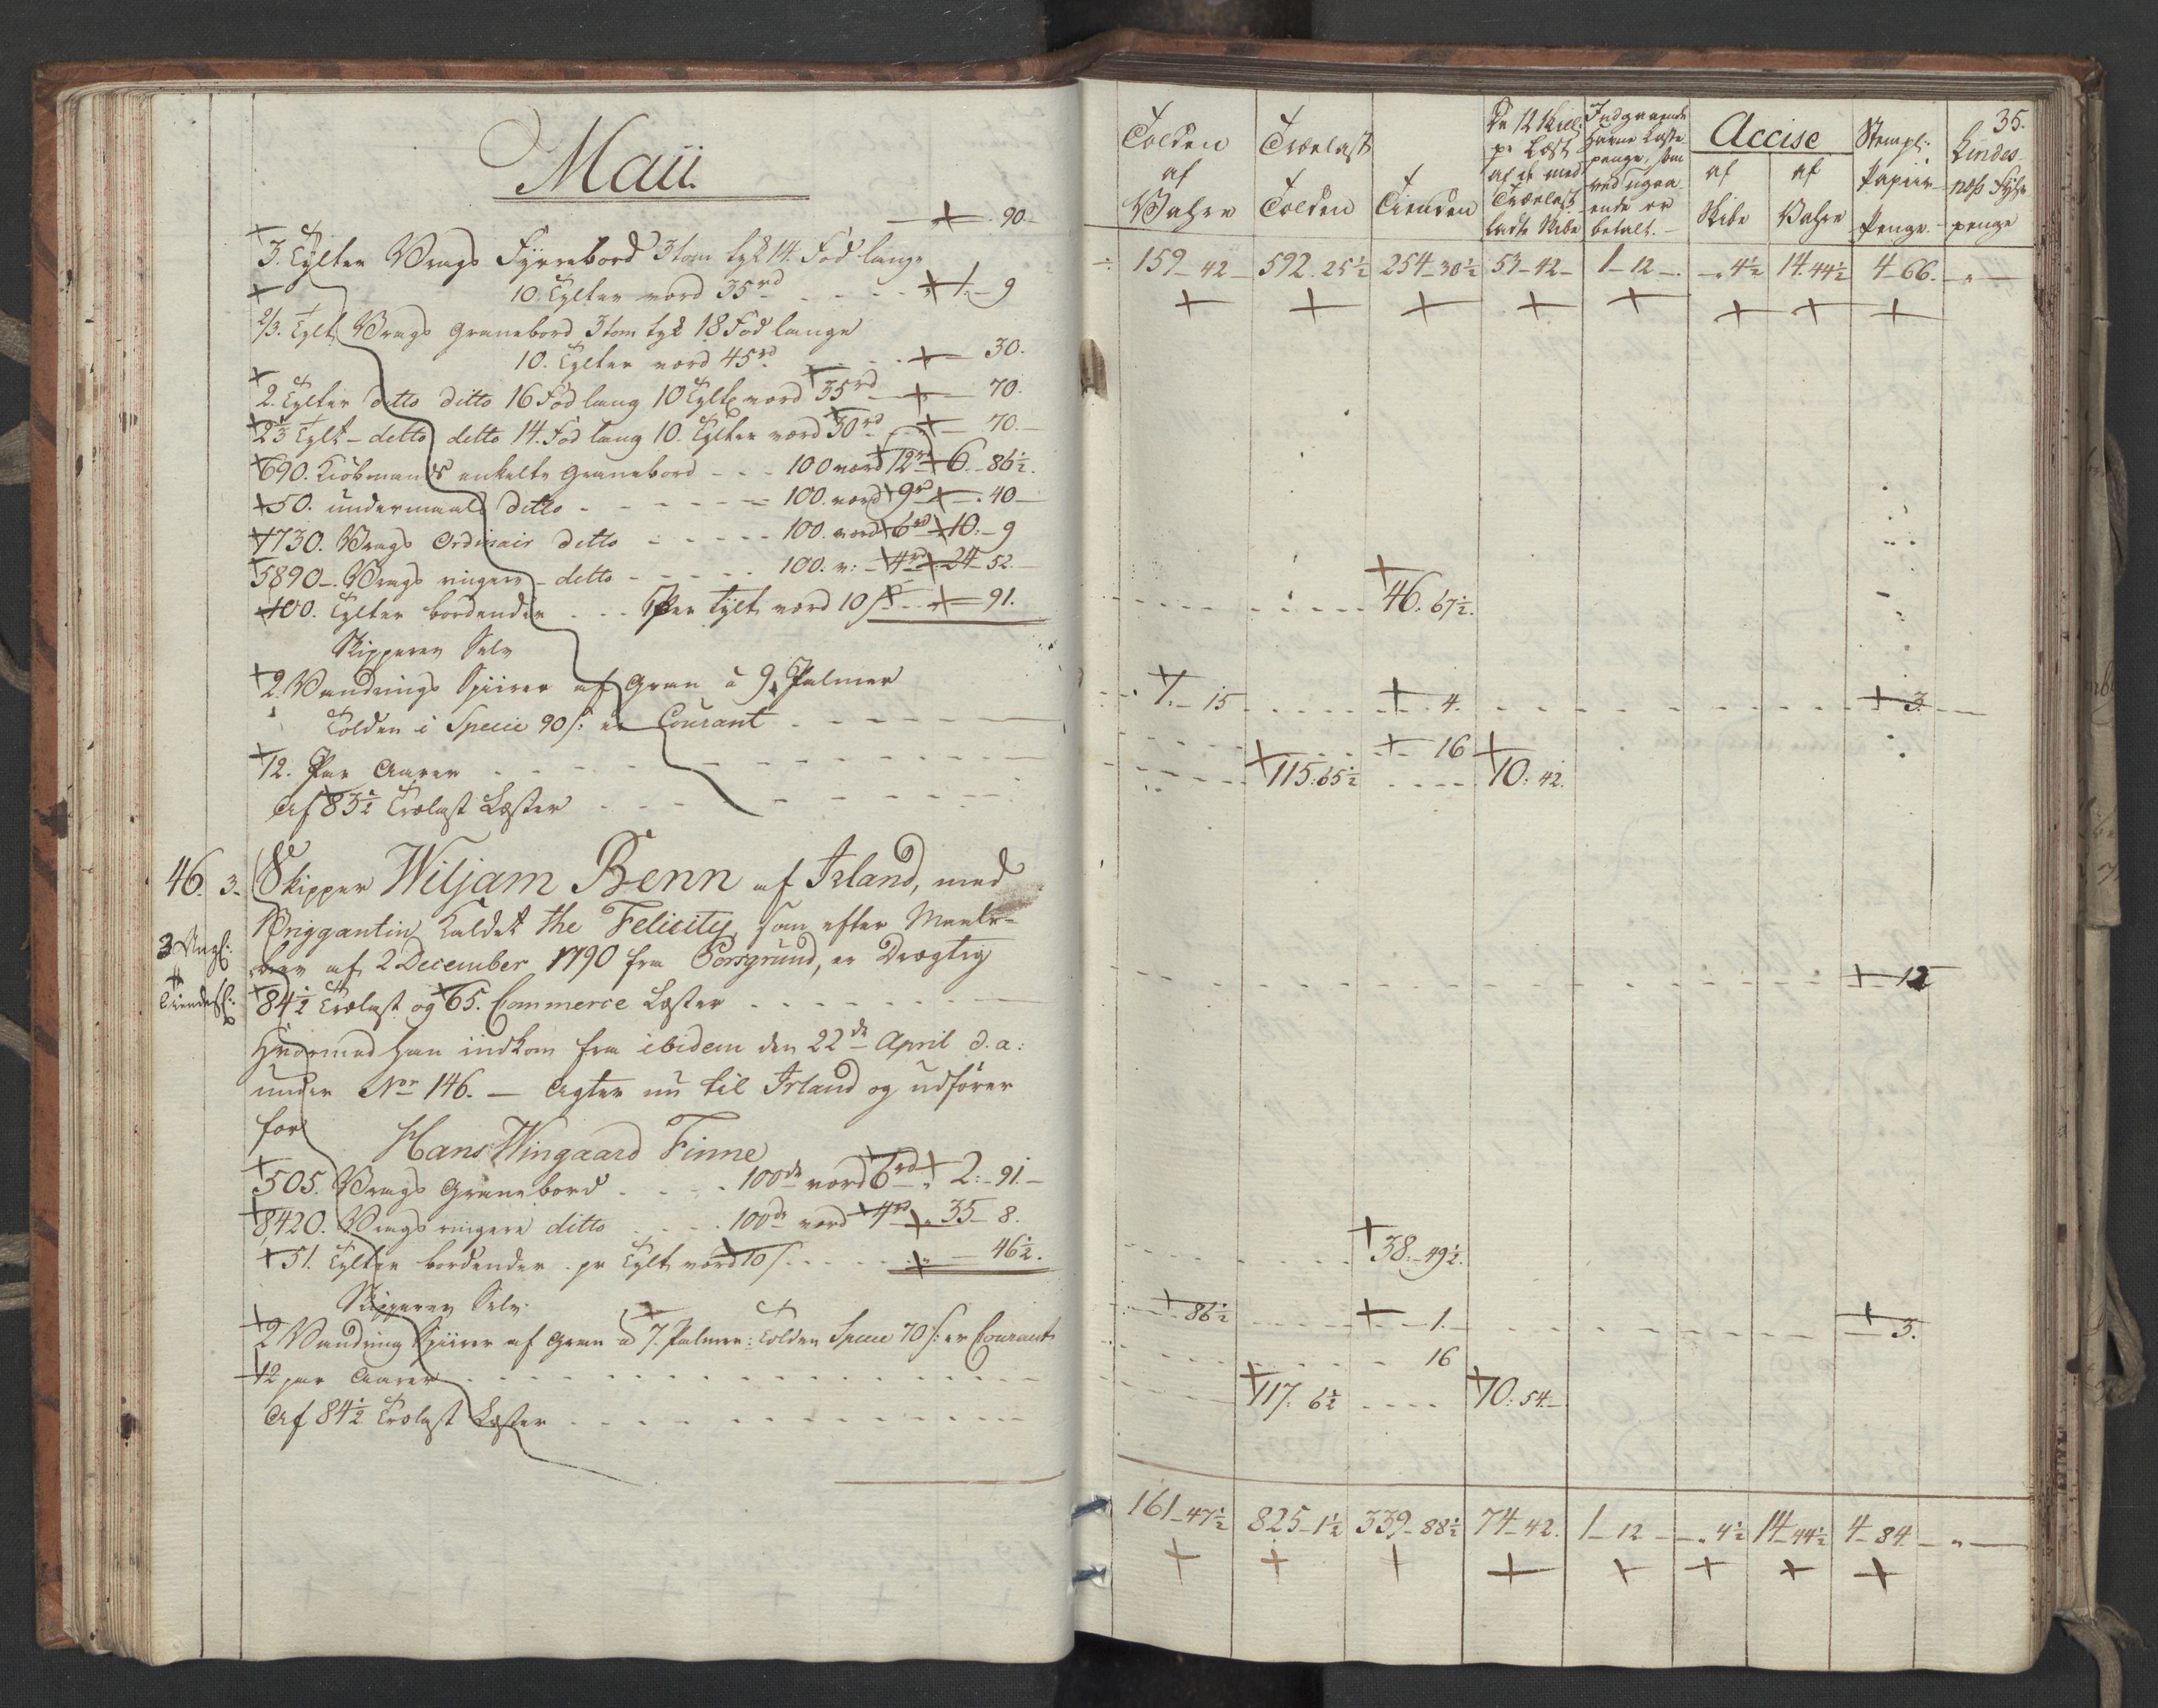 Maii
90
3. Tylter Vrags Fyrrebord 3 tom tyk 14. Fod lange
10 Tylter værd 35rd 1 - 9
2/3. Tylt Vrags Granebord 3 tom tyk 18 Fod lange
10. Tylter værd 45rd 30.
2. Tylter ditto ditto 16 Fod lang 10 Tylt værd 35rd 70.
2 1/3 Tylt ditto ditto 14. Fod lang 10. Tylter værd 30rd 70.
690. Kiöbmands enkelte Granebord 100 værd 12rd 6 - 86½.
50. undermaals ditto 100. værd 9rd 40
1730. Vrags Ordinair ditto 100. værd 6rd 10 - 9
5890. Vrags ringere ditto 100. v: 4rd 24 52.
100. Tylter bordender Per Tylt værd 10 s 91.
Skipperen Selv
2. Vandrings Spiirer af Gran a 9. Palmer
Tolden i Specie 90 s: er Courant
12. Par Aarer
Af 83½ Trælast Læster
46. 3. Skipper Wiljam Benn af Irland, med
Briggantin kaldet the Felicity, som efter Maale-
brev af 2 December 1790 fra Porsgrund, er Drægtig
84½ Trælast og 65. Commerce Læster
Hvormed han indkom fra ibidem den 22de April d. a:
under Nor 146. - Agter nu til Irland og udfører
for
Hans Wingaard Finne
505. Vrags Granebord 100de værd 6rd 2: - 91.
8,420. Vrags ringere ditto 100de værd 4rd 35 - 8.
51. Tylter bordender pr Tylt værd 10 s 46½.
Skipperen Selv.
2 Vandring Spiirer af Gran a 7. Palmer: Tolden Specie 70 s: er Courant
12 par Aarer
Af 84½ Trælast Læster
35.
Tolden af Vahre
Trælast Tolden
Tienden
De 12 Skill. pr Læst af de med Trælast ladte Skibe
Indgaaende Havne Laste penge, som ved udgaaende er betalt.
Accise
af Skibe
af Vahre
Stempl: Papiir Penge.
penge
159 - 42 592. 25½ 254 - 30½ 53 - 42 1 - 12 4½ 14. 44½ 4 - 66.
46. 67½.
1. - 15 4. 3.
16
115: 65½ 10: 42.
12
38. - 49½.
86½ 1. 3.
16
117. 6½ 10: 54.
161 - 47½ 825 - 1½ 339 - 88½ 74 - 42. 1 - 12 4½ 14 - 44½ 4 - 84